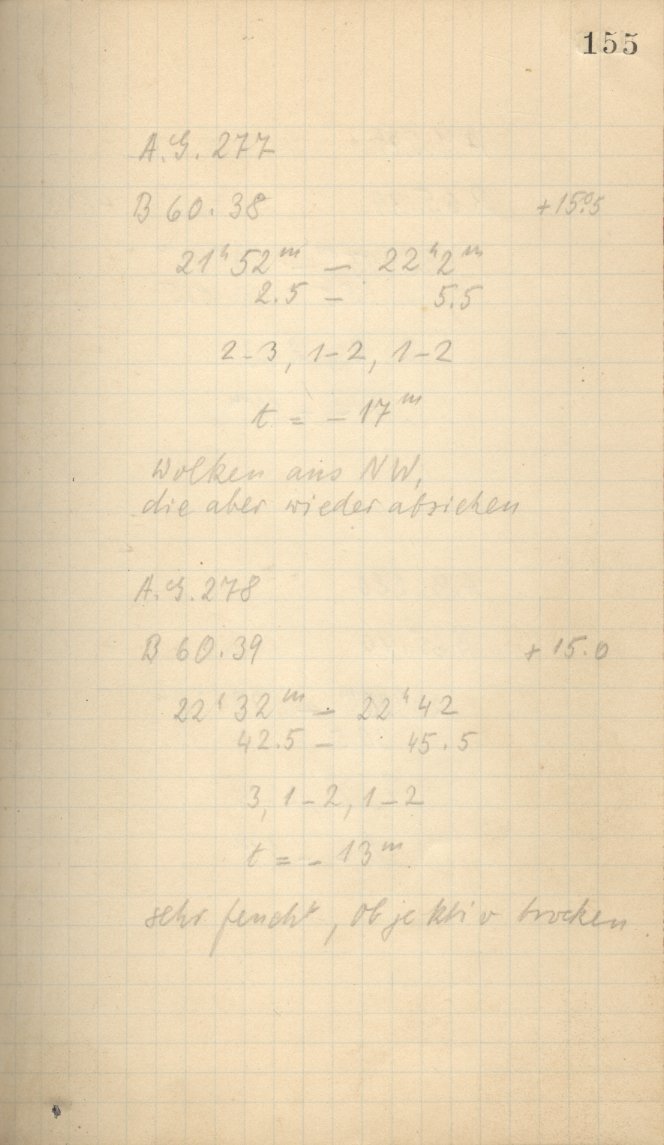 155
A.G. 277
B 60.38 +15°.5
21ʰ52ᵐ – 22ʰ2ᵐ
2.5 – 5.5
2-3, 1-2, 1-2
t = -17ᵐ
Wolken aus NW,
die aber wieder abziehen
A.G. 278
B 60.39 +15.0
22ʰ32ᵐ – 22ʰ42
42.5 – 45.5
3, 1-2, 1-2
t = -13ᵐ
sehr feucht, Objektiv trocken